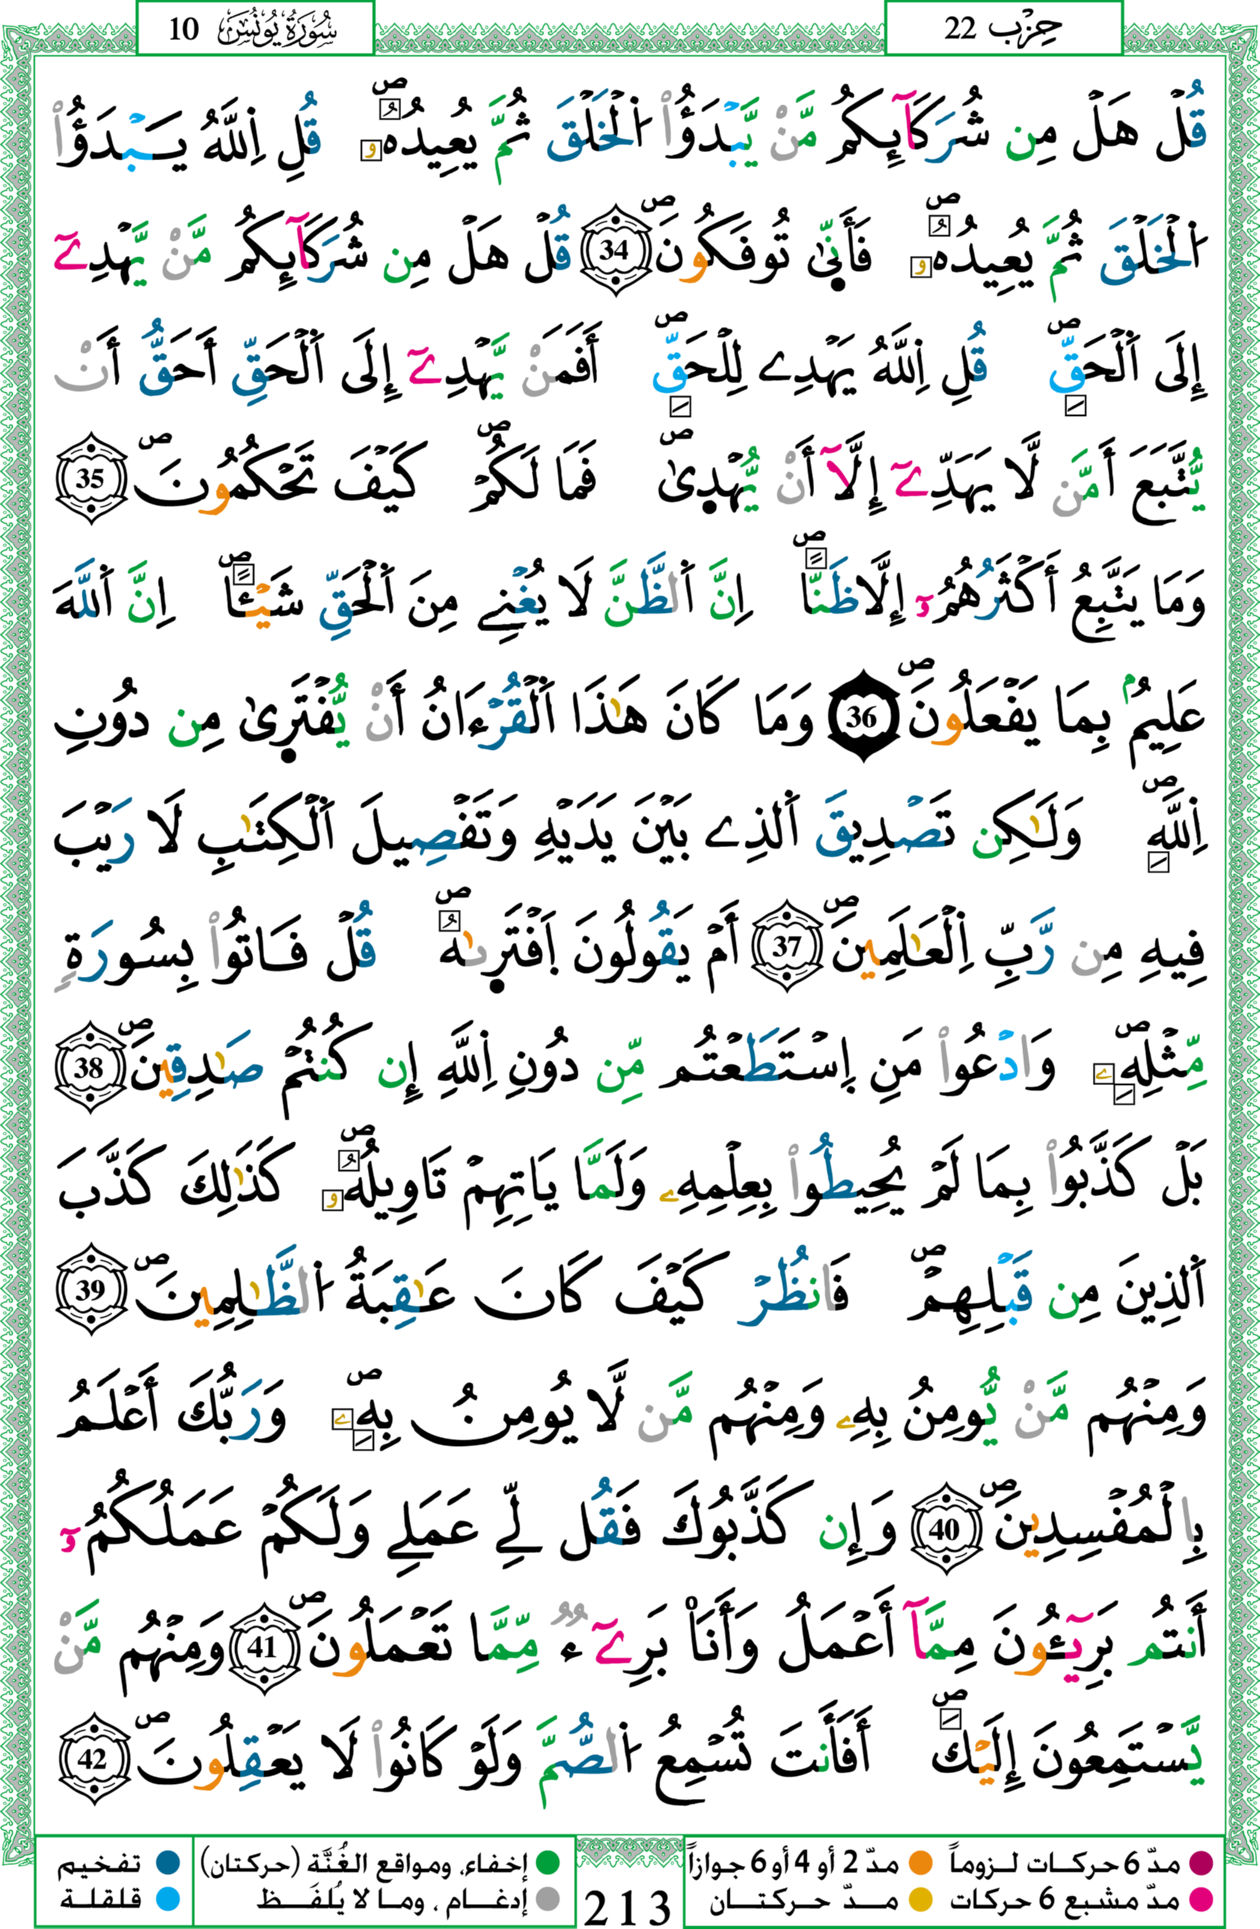 حِزْب 22
سُورَةُ يُونُسَ 10
قُلْ هَلْ مِن شُرَكَآئِكُم مَّنْ يَّبْدَؤُاْ اُ۬لْخَلْقَ ثُمَّ يُعِيدُهُۥ ص قُلِ اِ۬للَّهُ يَبْدَؤُاْ
اُ۬لْخَلْقَ ثُمَّ يُعِيدُهُۥ ص فَأَنّ۪يٰ تُوفَكُونَ ص 34 قُلْ هَلْ مِن شُرَكَآئِكُم مَّنْ يَّهْدِےٓ
إِلَى اَ۬لْحَقِّ ص قُلِ اِ۬للَّهُ يَهْدِے لِلْحَقِّ ص أَفَمَنْ يَّهْدِےٓ إِلَى اَ۬لْحَقِّ أَحَقُّ أَنْ
يُّتَّبَعَ أَمَّن لَّا يَهَدِّےٓ إِلَّآ أَنْ يُّهْد۪يٰ ص فَمَا لَكُمْ ص كَيْفَ تَحْكُمُونَ ص 35
وَمَا يَتَّبِعُ أَكْثَرُهُمُۥٓ إِلَّا ظَنّاً ص اِنَّ اَ۬لظَّنَّ لَا يُغْنِے مِنَ اَ۬لْحَقِّ شَيْـٔاً ص اِنَّ اَ۬للَّهَ
عَلِيمُۢ بِمَا يَفْعَلُونَ ص 36 وَمَا كَانَ هَٰذَا اَ۬لْقُرْءَانُ أَنْ يُّفْتَر۪يٰ مِن دُونِ
اِ۬للَّهِ ص وَلَٰكِن تَصْدِيقَ اَ۬لذِے بَيْنَ يَدَيْهِ وَتَفْصِيلَ اَ۬لْكِتَٰبِ لَا رَيْبَ
فِيهِ مِن رَّبِّ اِ۬لْعَٰلَمِينَ ص 37 أَمْ يَقُولُونَ اَ۪فْتَر۪يٰهُ ص قُلْ فَاتُواْ بِسُورَةٖ
مِّثْلِهِۦ ص وَادْعُواْ مَنِ اِ۪سْتَطَعْتُم مِّن دُونِ اِ۬للَّهِ إِن كُنتُمْ صَٰدِقِينَ ص 38
بَلْ كَذَّبُواْ بِمَا لَمْ يُحِيطُواْ بِعِلْمِهِۦ وَلَمَّا يَاتِهِمْ تَاوِيلُهُۥ ص كَذَٰلِكَ كَذَّبَ
اَ۬لذِينَ مِن قَبْلِهِمْ ص فَانظُرْ كَيْفَ كَانَ عَٰقِبَةُ اُ۬لظَّٰلِمِينَ ص 39
وَمِنْهُم مَّنْ يُّومِنُ بِهِۦ وَمِنْهُم مَّن لَّا يُومِنُ بِهِۦ ص وَرَبُّكَ أَعْلَمُ
بِالْمُفْسِدِينَ ص 40 وَإِن كَذَّبُوكَ فَقُل لِّے عَمَلِے وَلَكُمْ عَمَلُكُمُۥٓ
أَنتُم بَرِيٓـُٔونَ مِمَّآ أَعْمَلُ وَأَنَا۠ بَرِےٓءٞ مِّمَّا تَعْمَلُونَ ص 41 وَمِنْهُم مَّنْ
يَّسْتَمِعُونَ إِلَيْكَ ص أَفَأَنتَ تُسْمِعُ اُ۬لصُّمَّ وَلَوْ كَانُواْ لَا يَعْقِلُونَ ص 42
مدّ 6 حركات لـزوماً مدّ 2 أو 4 أو 6 جوازاً
مدّ مشبع 6 حركات مـدّ حـركـتـان
213
إخفاء، ومواقع الغُنَّة (حركتان)
إدغـام ، ومـا لا يُلفَـظ
تفخيم
قلقلة